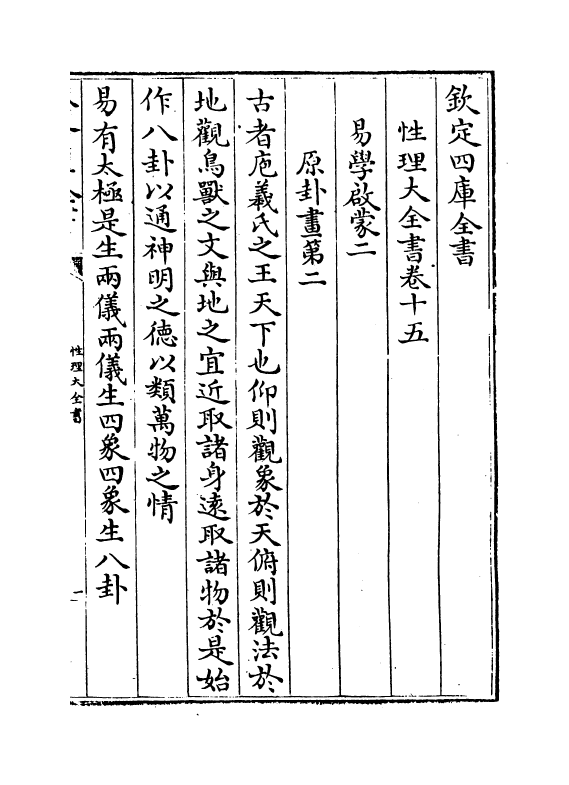 欽定四庫全書
性理大全書卷十五
易學啟蒙二
原卦畫第二
古者庖羲氏之王天下也仰則觀象於天俯則觀法於
地觀鳥獸之文與地之宜近取諸身遠取諸物於是始
作八卦以通神明之德以類萬物之情
易有太極是生兩儀兩儀生四象四象生八卦
性理大全書